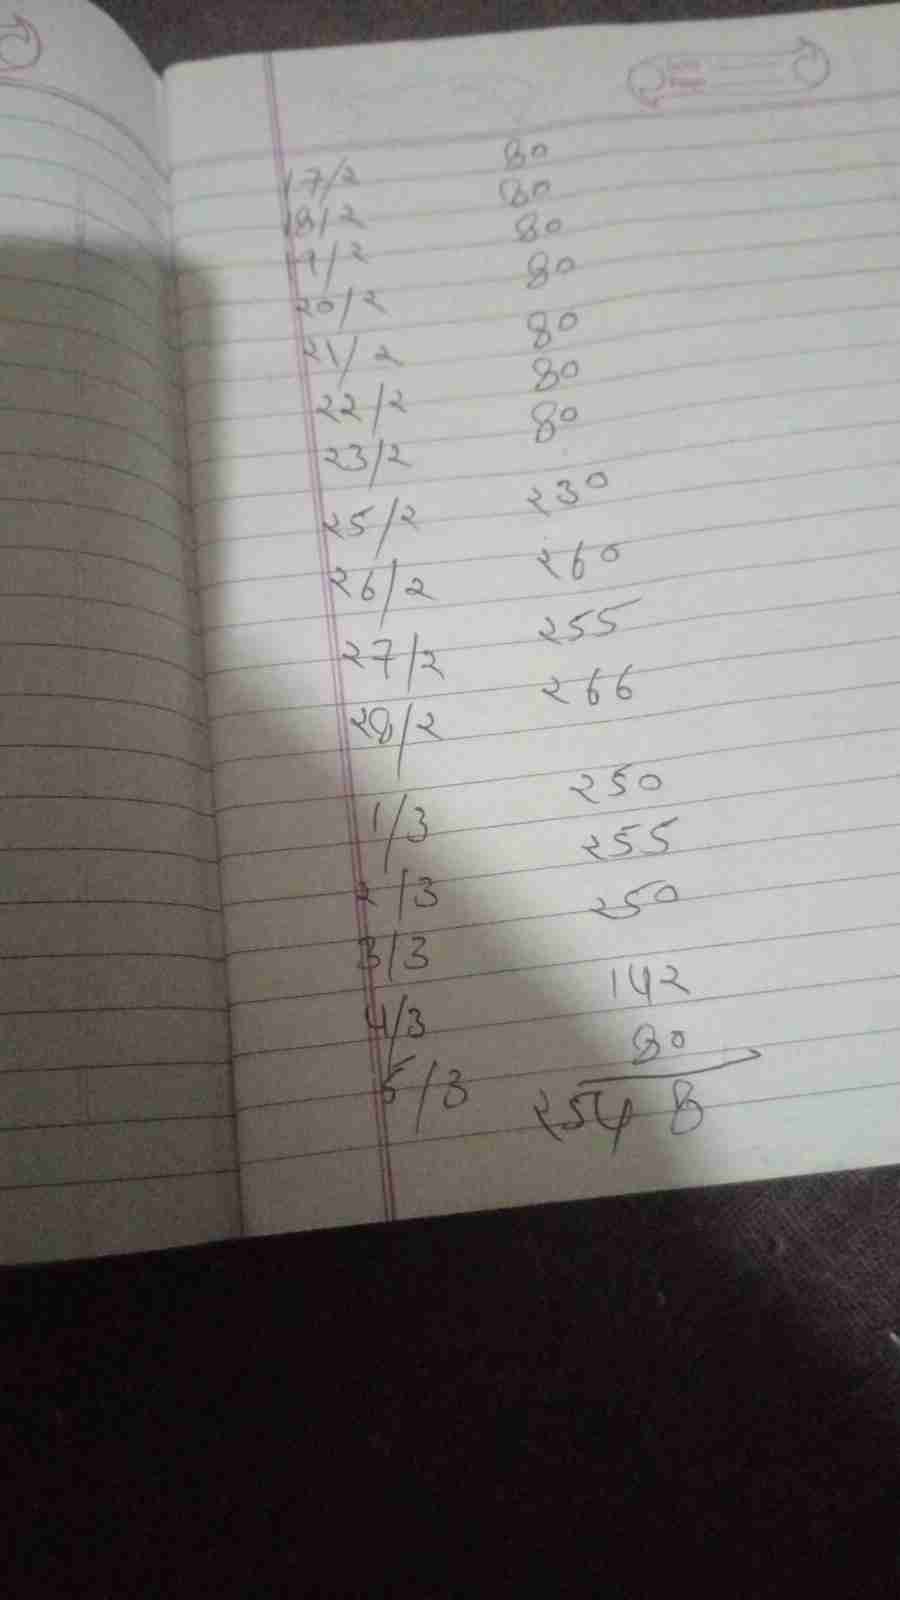 17/2 80
18/2 80
19/2 80
20/2 80
21/2 80
22/2 80
23/2 80
25/2 230
26/2 260
27/2 255
28/2 266
1/3 250
2/3 255
3/3 250
4/3 142
5/3 80
2548